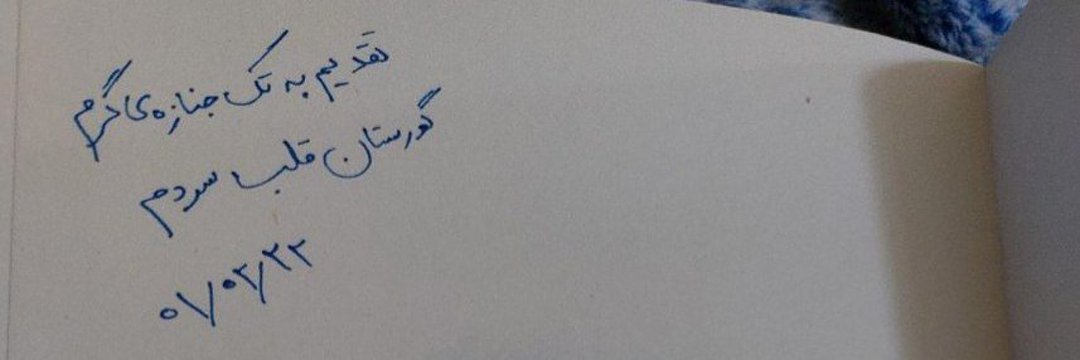 تقدیم به تک جنازه‌ی گرم
گورستان قلب سردم
۰۷/۰۲/۲۲